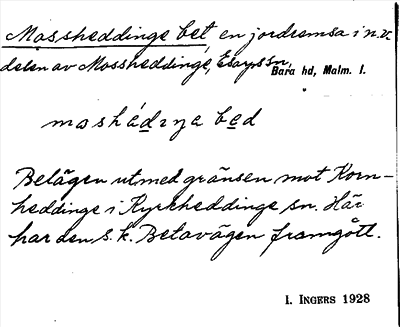 Mossheddinge bet, en jordremsa i n.v.
delen av Mossheddinge, Esarps sn,
Bara hd, Malm. l.
mashádɪŋa bed
Belägen utmed gränsen mot Korn-
heddinge i Kyrkheddinge sn. Här
har den s.k. Betavägen framgått.
I. INGERS 1928